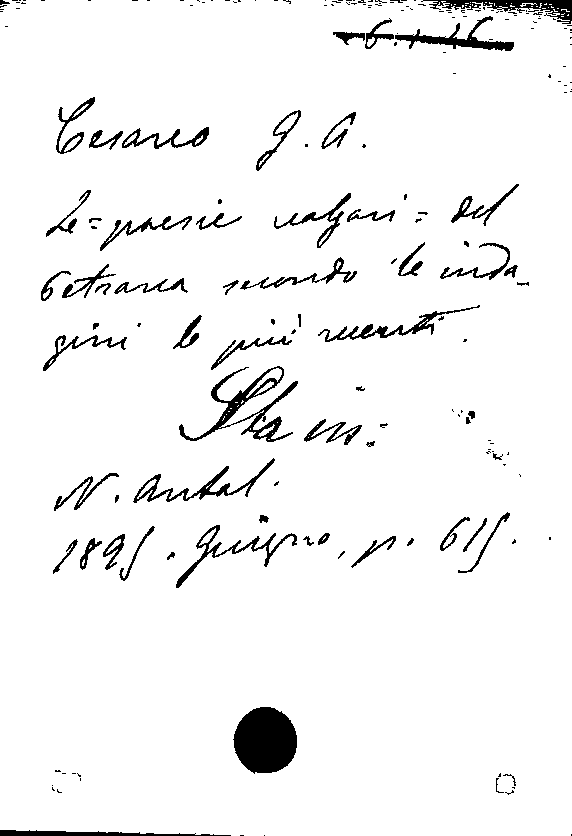 6.1.26
Cesareo G. A.
Le "poesie volgari" del
Petrarca secondo le inda-
gini le più recenti.
Sta in:
N. Antol.
1895. Giugno, p. 615.